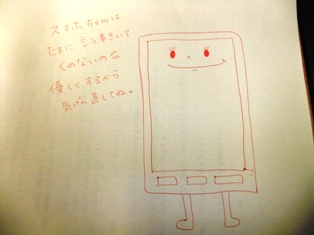 スマホちゃんは
たまに言う事きいて
くれないので
優しくするから
気げん直してね。